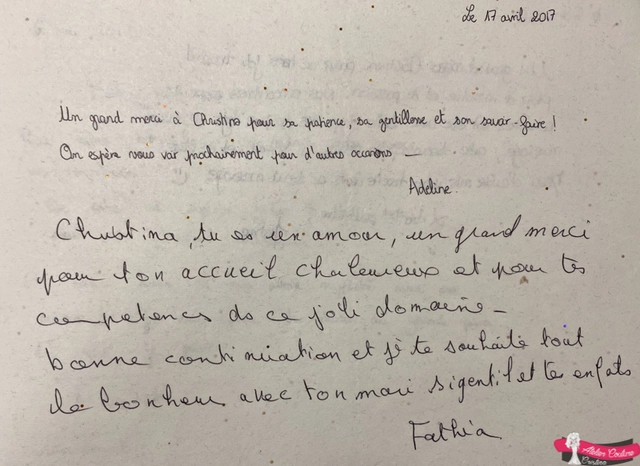 Le 17 avril 2017
Un grand merci à Christina pour sa patience, sa gentillesse et son savoir-faire !
On espère vous voir prochainement pour d'autres occasions, —
Adeline.
Christina, tu es un amour, un grand merci
pour ton accueil chaleureux et pour tes
competences ds ce joli domaine -
bonne continuation et je te souhaite tout
le bonheur avec ton mari si gentil et tes enfats
Fathia
Atelier Couture